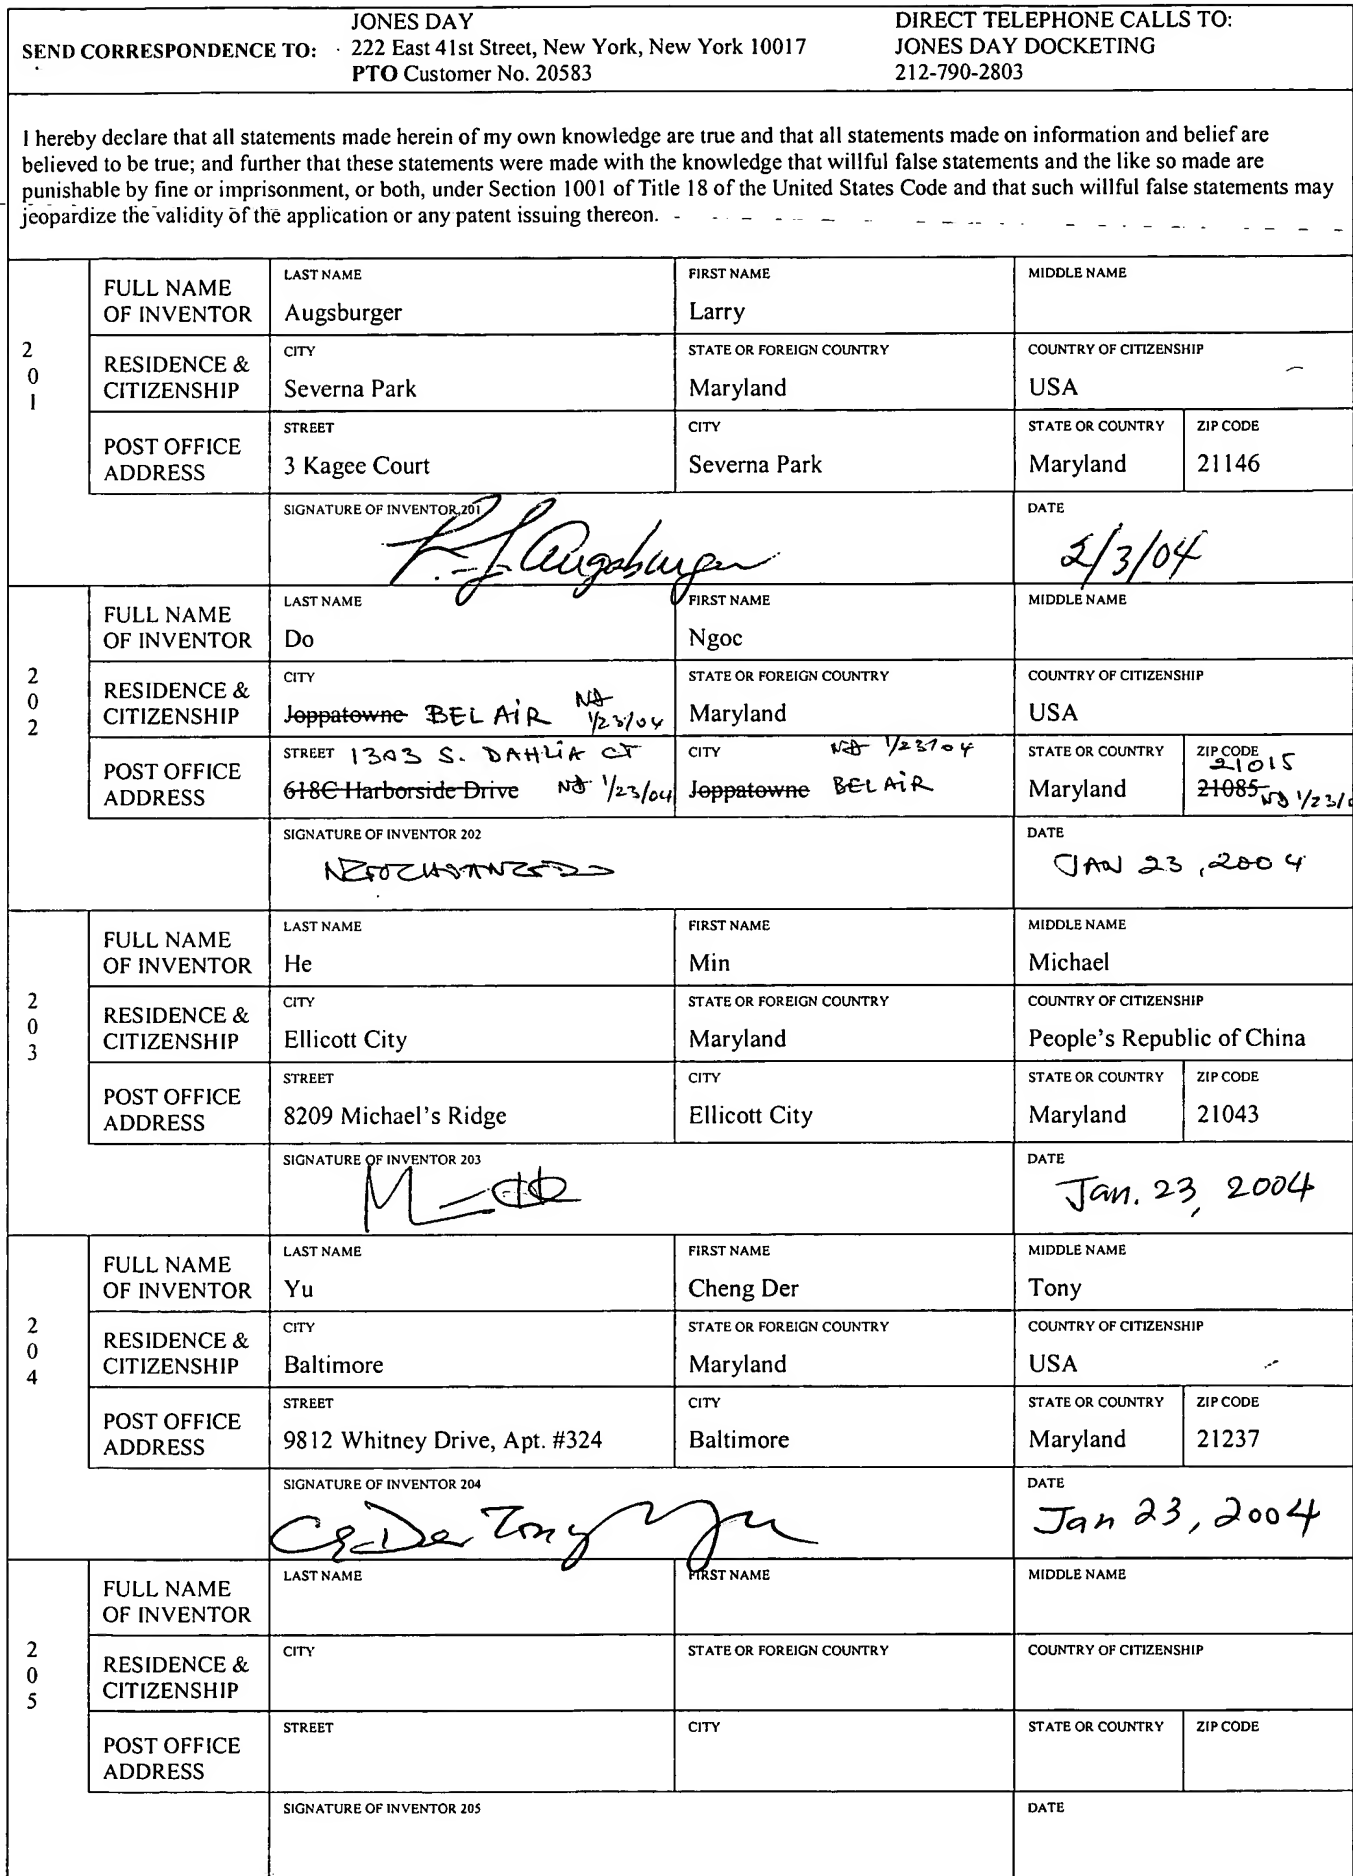 JONES DAY
SEND CORRESPONDENCE TO: 222 East 41st Street, New York, New York 10017
PTO Customer No. 20583
DIRECT TELEPHONE CALLS TO:
JONES DAY DOCKETING
212-790-2803
I hereby declare that all statements made herein of my own knowledge are true and that all statements made on information and belief are
believed to be true; and further that these statements were made with the knowledge that willful false statements and the like so made are
punishable by fine or imprisonment, or both, under Section 1001 of Title 18 of the United States Code and that such willful false statements may
jeopardize the validity of the application or any patent issuing thereon.
201
FULL NAME OF INVENTOR
LAST NAME
Augsburger
FIRST NAME
Larry
MIDDLE NAME
RESIDENCE & CITIZENSHIP
CITY
Severna Park
STATE OR FOREIGN COUNTRY
Maryland
COUNTRY OF CITIZENSHIP
USA
POST OFFICE ADDRESS
STREET
3 Kagee Court
CITY
Severna Park
STATE OR COUNTRY
Maryland
ZIP CODE
21146
SIGNATURE OF INVENTOR 201
Augsburger
DATE
2/3/04
202
FULL NAME OF INVENTOR
LAST NAME
Do
FIRST NAME
Ngoc
MIDDLE NAME
RESIDENCE & CITIZENSHIP
CITY
Joppatowne BEL AIR ND 1/23/04
STATE OR FOREIGN COUNTRY
Maryland
COUNTRY OF CITIZENSHIP
USA
POST OFFICE ADDRESS
STREET 1303 S. DAHLIA CT
618C Harborside Drive ND 1/23/04
CITY ND 1/23/04
Joppatowne BEL AIR
STATE OR COUNTRY
Maryland
ZIP CODE
21015
21085 ND 1/23/0
SIGNATURE OF INVENTOR 202
DATE
JAN 23, 2004
203
FULL NAME OF INVENTOR
LAST NAME
He
FIRST NAME
Min
MIDDLE NAME
Michael
RESIDENCE & CITIZENSHIP
CITY
Ellicott City
STATE OR FOREIGN COUNTRY
Maryland
COUNTRY OF CITIZENSHIP
People's Republic of China
POST OFFICE ADDRESS
STREET
8209 Michael's Ridge
CITY
Ellicott City
STATE OR COUNTRY
Maryland
ZIP CODE
21043
SIGNATURE OF INVENTOR 203
DATE
Jan. 23, 2004
204
FULL NAME OF INVENTOR
LAST NAME
Yu
FIRST NAME
Cheng Der
MIDDLE NAME
Tony
RESIDENCE & CITIZENSHIP
CITY
Baltimore
STATE OR FOREIGN COUNTRY
Maryland
COUNTRY OF CITIZENSHIP
USA
POST OFFICE ADDRESS
STREET
9812 Whitney Drive, Apt. #324
CITY
Baltimore
STATE OR COUNTRY
Maryland
ZIP CODE
21237
SIGNATURE OF INVENTOR 204
Der Tony Yu
DATE
Jan 23, 2004
205
FULL NAME OF INVENTOR
LAST NAME
FIRST NAME
MIDDLE NAME
RESIDENCE & CITIZENSHIP
CITY
STATE OR FOREIGN COUNTRY
COUNTRY OF CITIZENSHIP
POST OFFICE ADDRESS
STREET
CITY
STATE OR COUNTRY
ZIP CODE
SIGNATURE OF INVENTOR 205
DATE